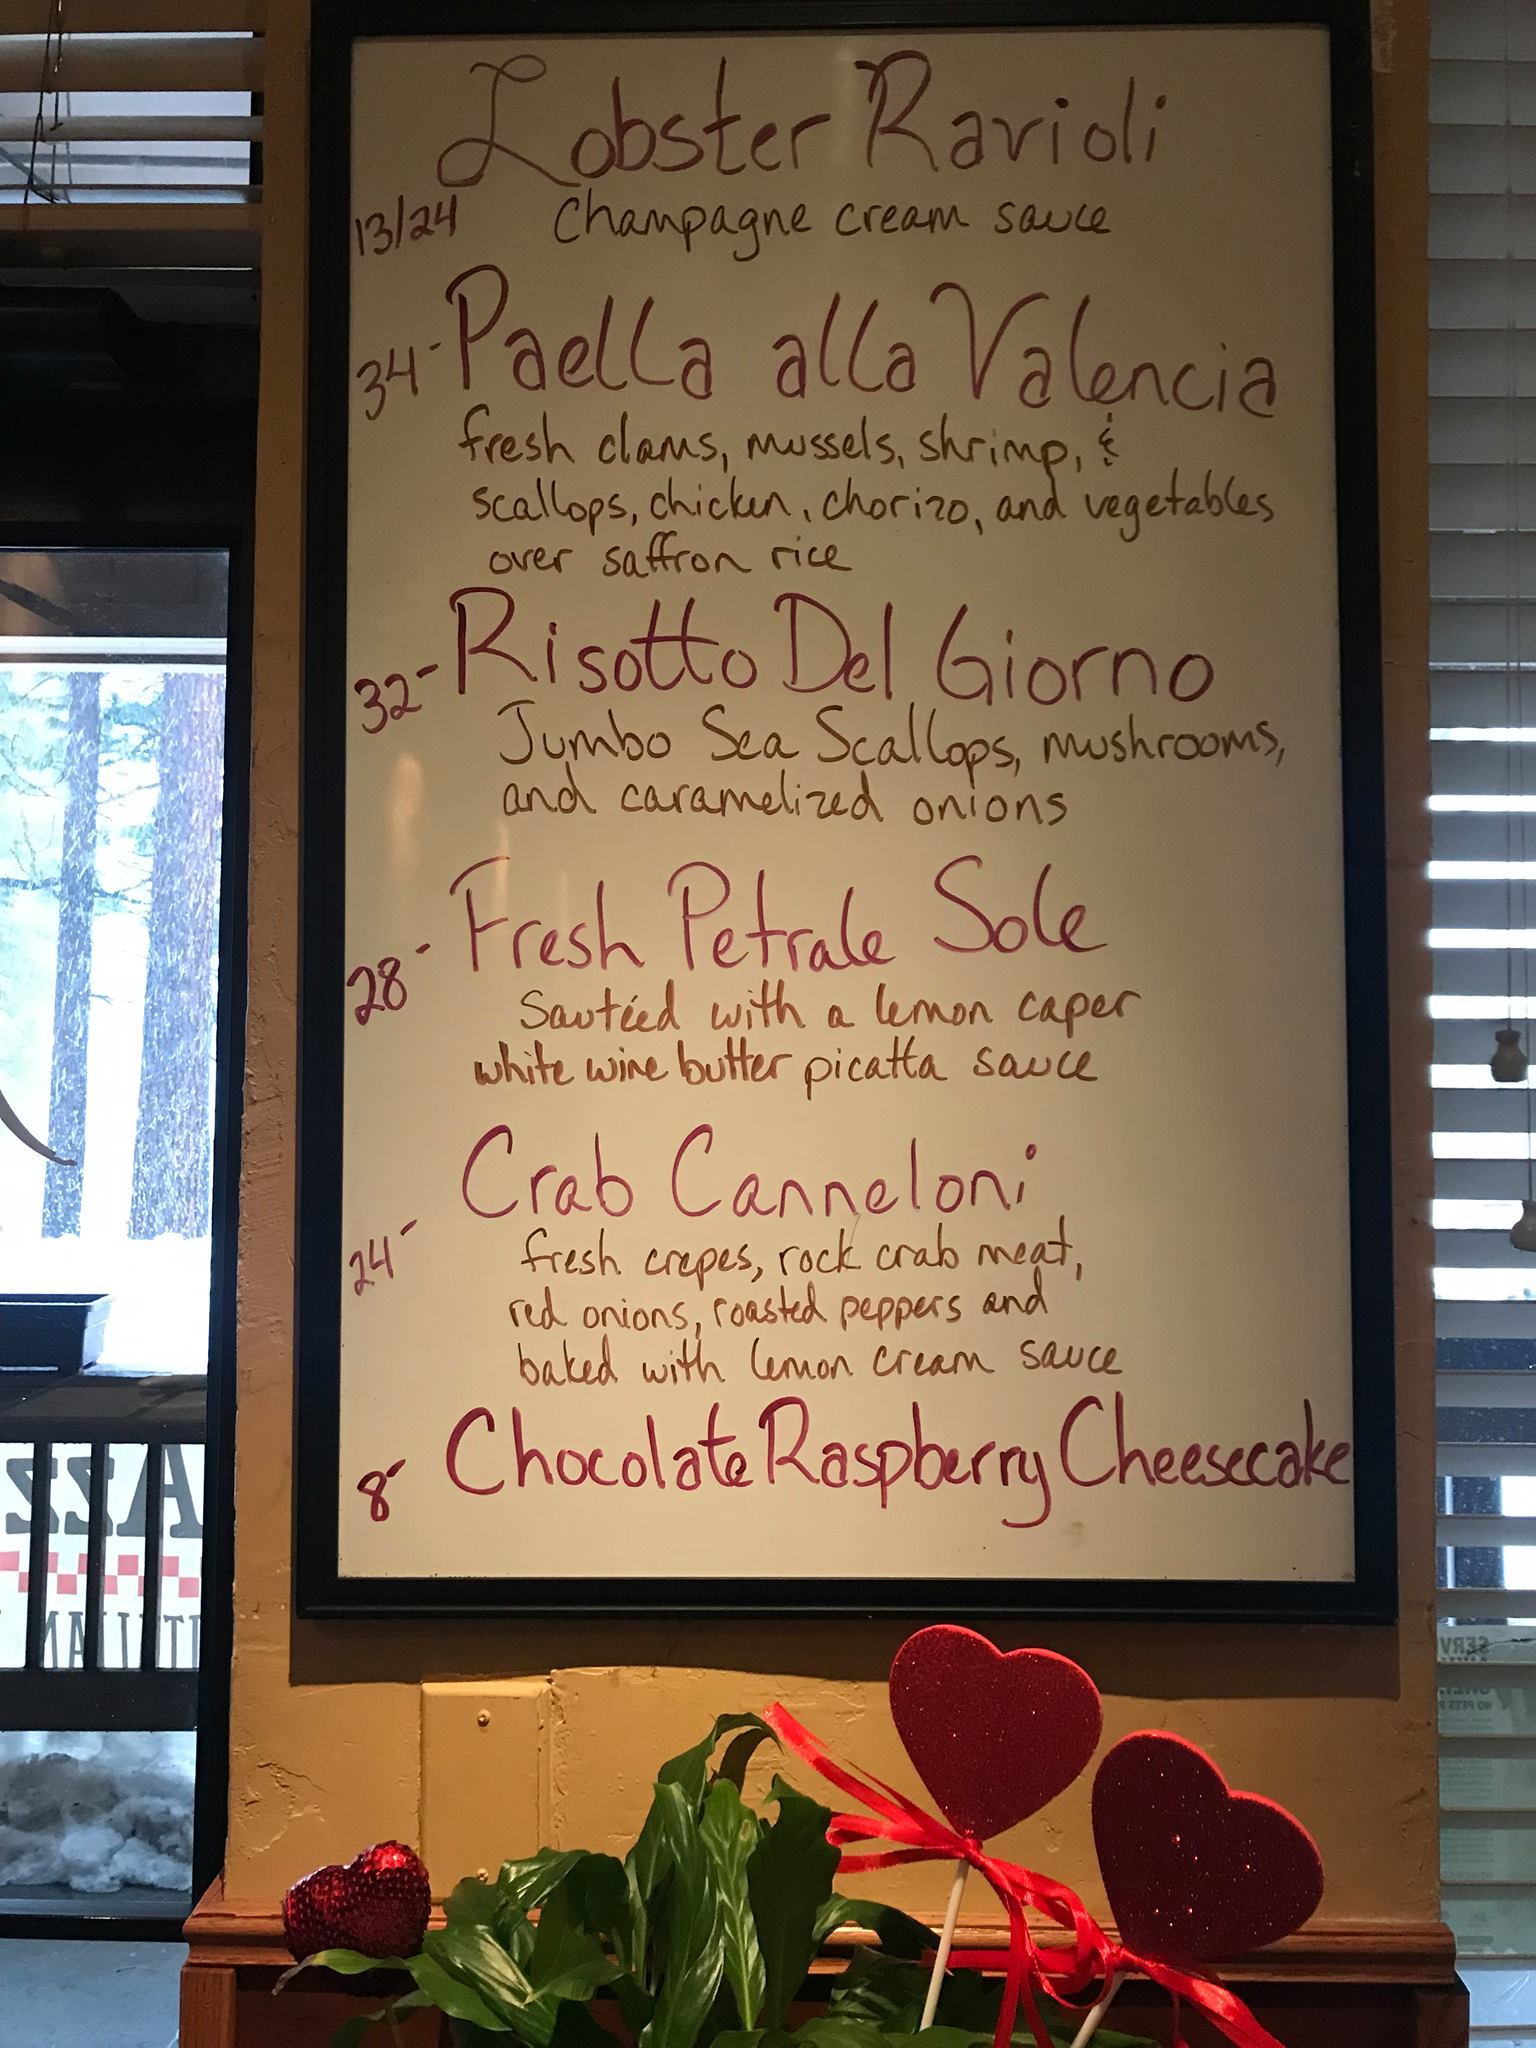 Lobster Ravioli
13/24 Champagne cream sauce
34- Paella alla Valencia
fresh clams, mussels, shrimp, &
scallops, chicken, chorizo, and vegetables
over saffron rice
32- Risotto Del Giorno
Jumbo Sea Scallops, mushrooms,
and caramelized onions
28- Fresh Petrale Sole
Sautéed with a lemon caper
white wine butter picatta sauce
Crab Canneloni
24- fresh crepes, rock crab meat,
red onions, roasted peppers and
baked with lemon cream sauce
8- Chocolate Raspberry Cheesecake